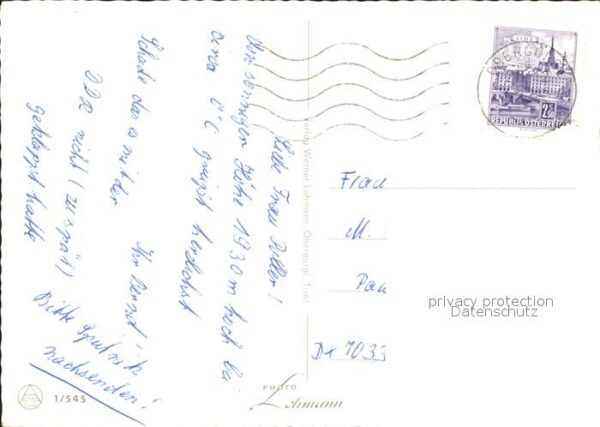 Liebe Frau
Von sonniger Höhe 1930 m hoch bei
circa 0°C grüsst herzlichst
Ihr
Schade dass es mit der
DDR nicht (zu spät)
geklappt hatte
Bitte Sputnik
nachsenden!
1/545
Verlag Werner Lohmann Obergurgl Tirol
PHOTO
Lohmann
LINZ
OBERGU
2.50
REPUBLIK ÖSTERREICH
Frau
M.
Pau
D-7033
privacy protection
Datenschutz